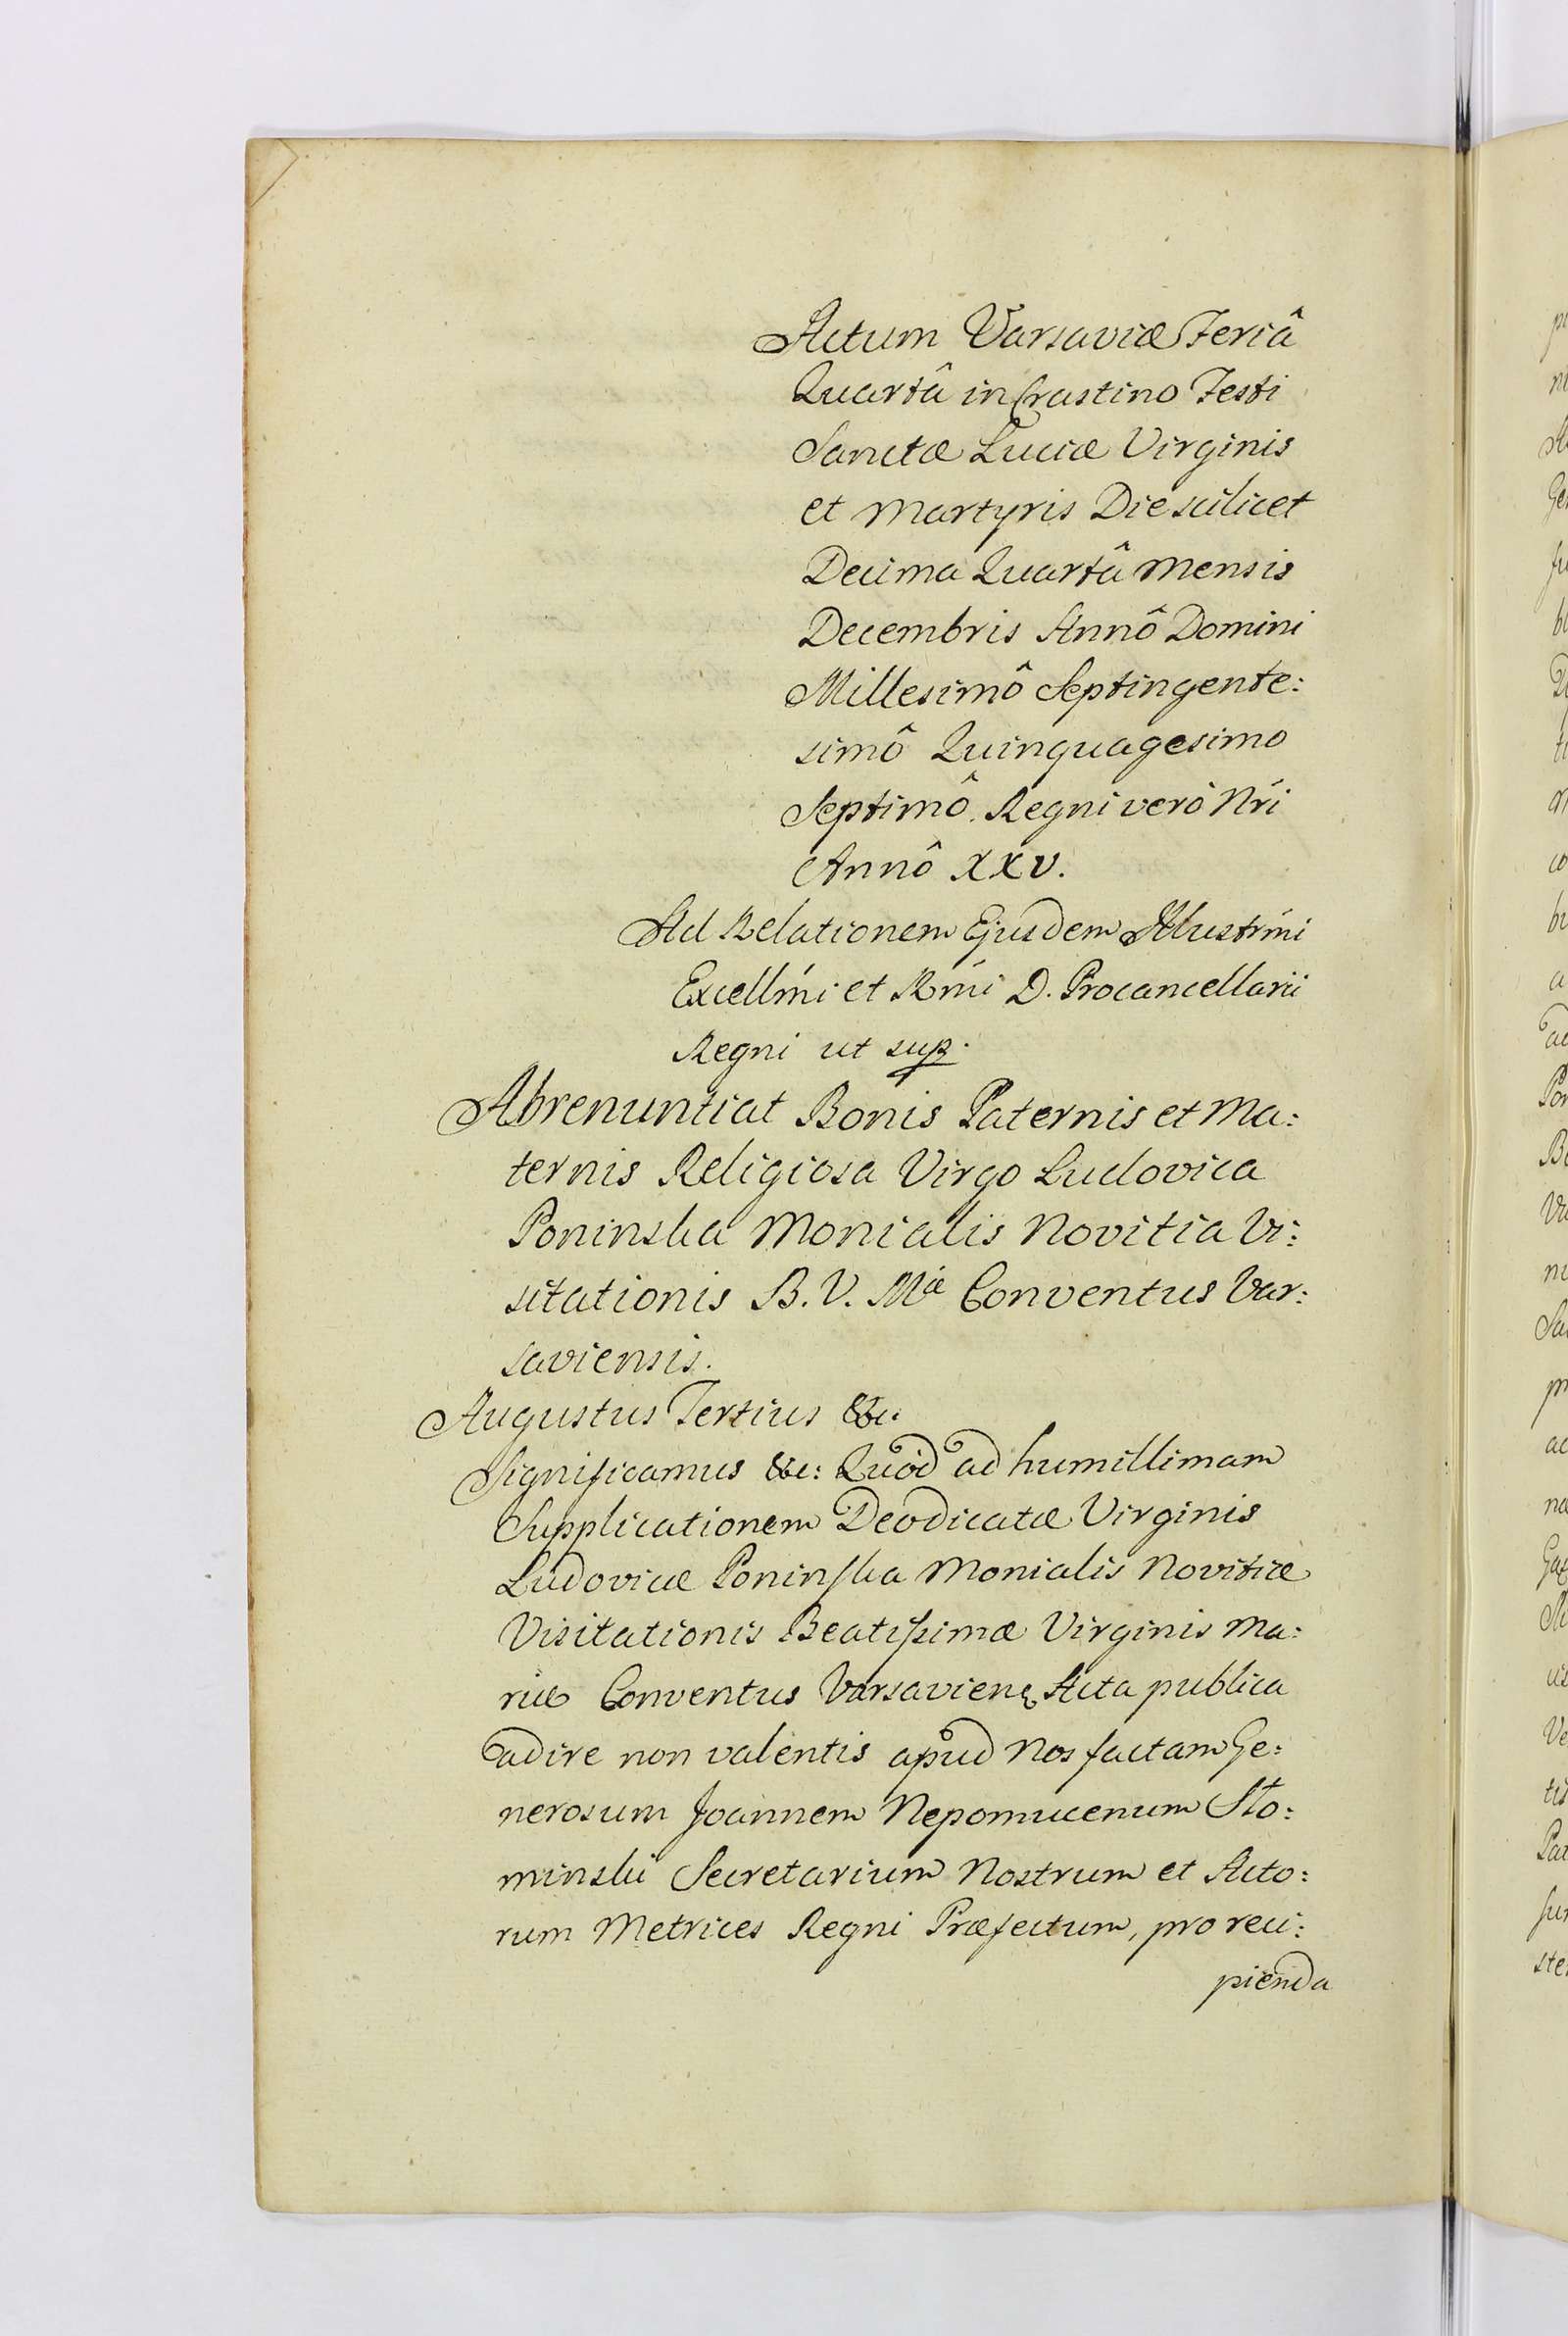 Actum Varsaviæ Feriâ
Quartâ in Crastino Festi
Sanctæ Luciæ Virginis
et Martyris Die scilicet
Decima Quartâ Mensis
Decembris Annô Domini
Millesimô Septingente:
simô Quinquagesimo
Septimô. Regni verò Nri
Annô XXV.
Ad Relationem Ejusdem Illustrmi
Excellmi et Rmi D. Procancellarii
Regni ut sup.
Abrenuntiat Bonis Paternis et Ma:
ternis Religiosa Virgo Ludovica
Poninska Monialis Novitia Vi:
sitationis B. V. Mæ Conventus Var:
saviensis.
Augustus Tertius &c.
Significamus &c: Quòd ad humillimam
Supplicationem Deodicatæ Virginis
Ludovicæ Poninska Monialis Novitiæ
Visitationis Beatissimæ Virginis Ma:
riæ Conventus Varsavien Acta publica
adire non valentis apud Nos factam Ge:
nerosum Joannem Nepomucenum Sło:
minski Secretarium Nostrum et Acto:
rum Metrices Regni Præfectum, pro reci:
pienda